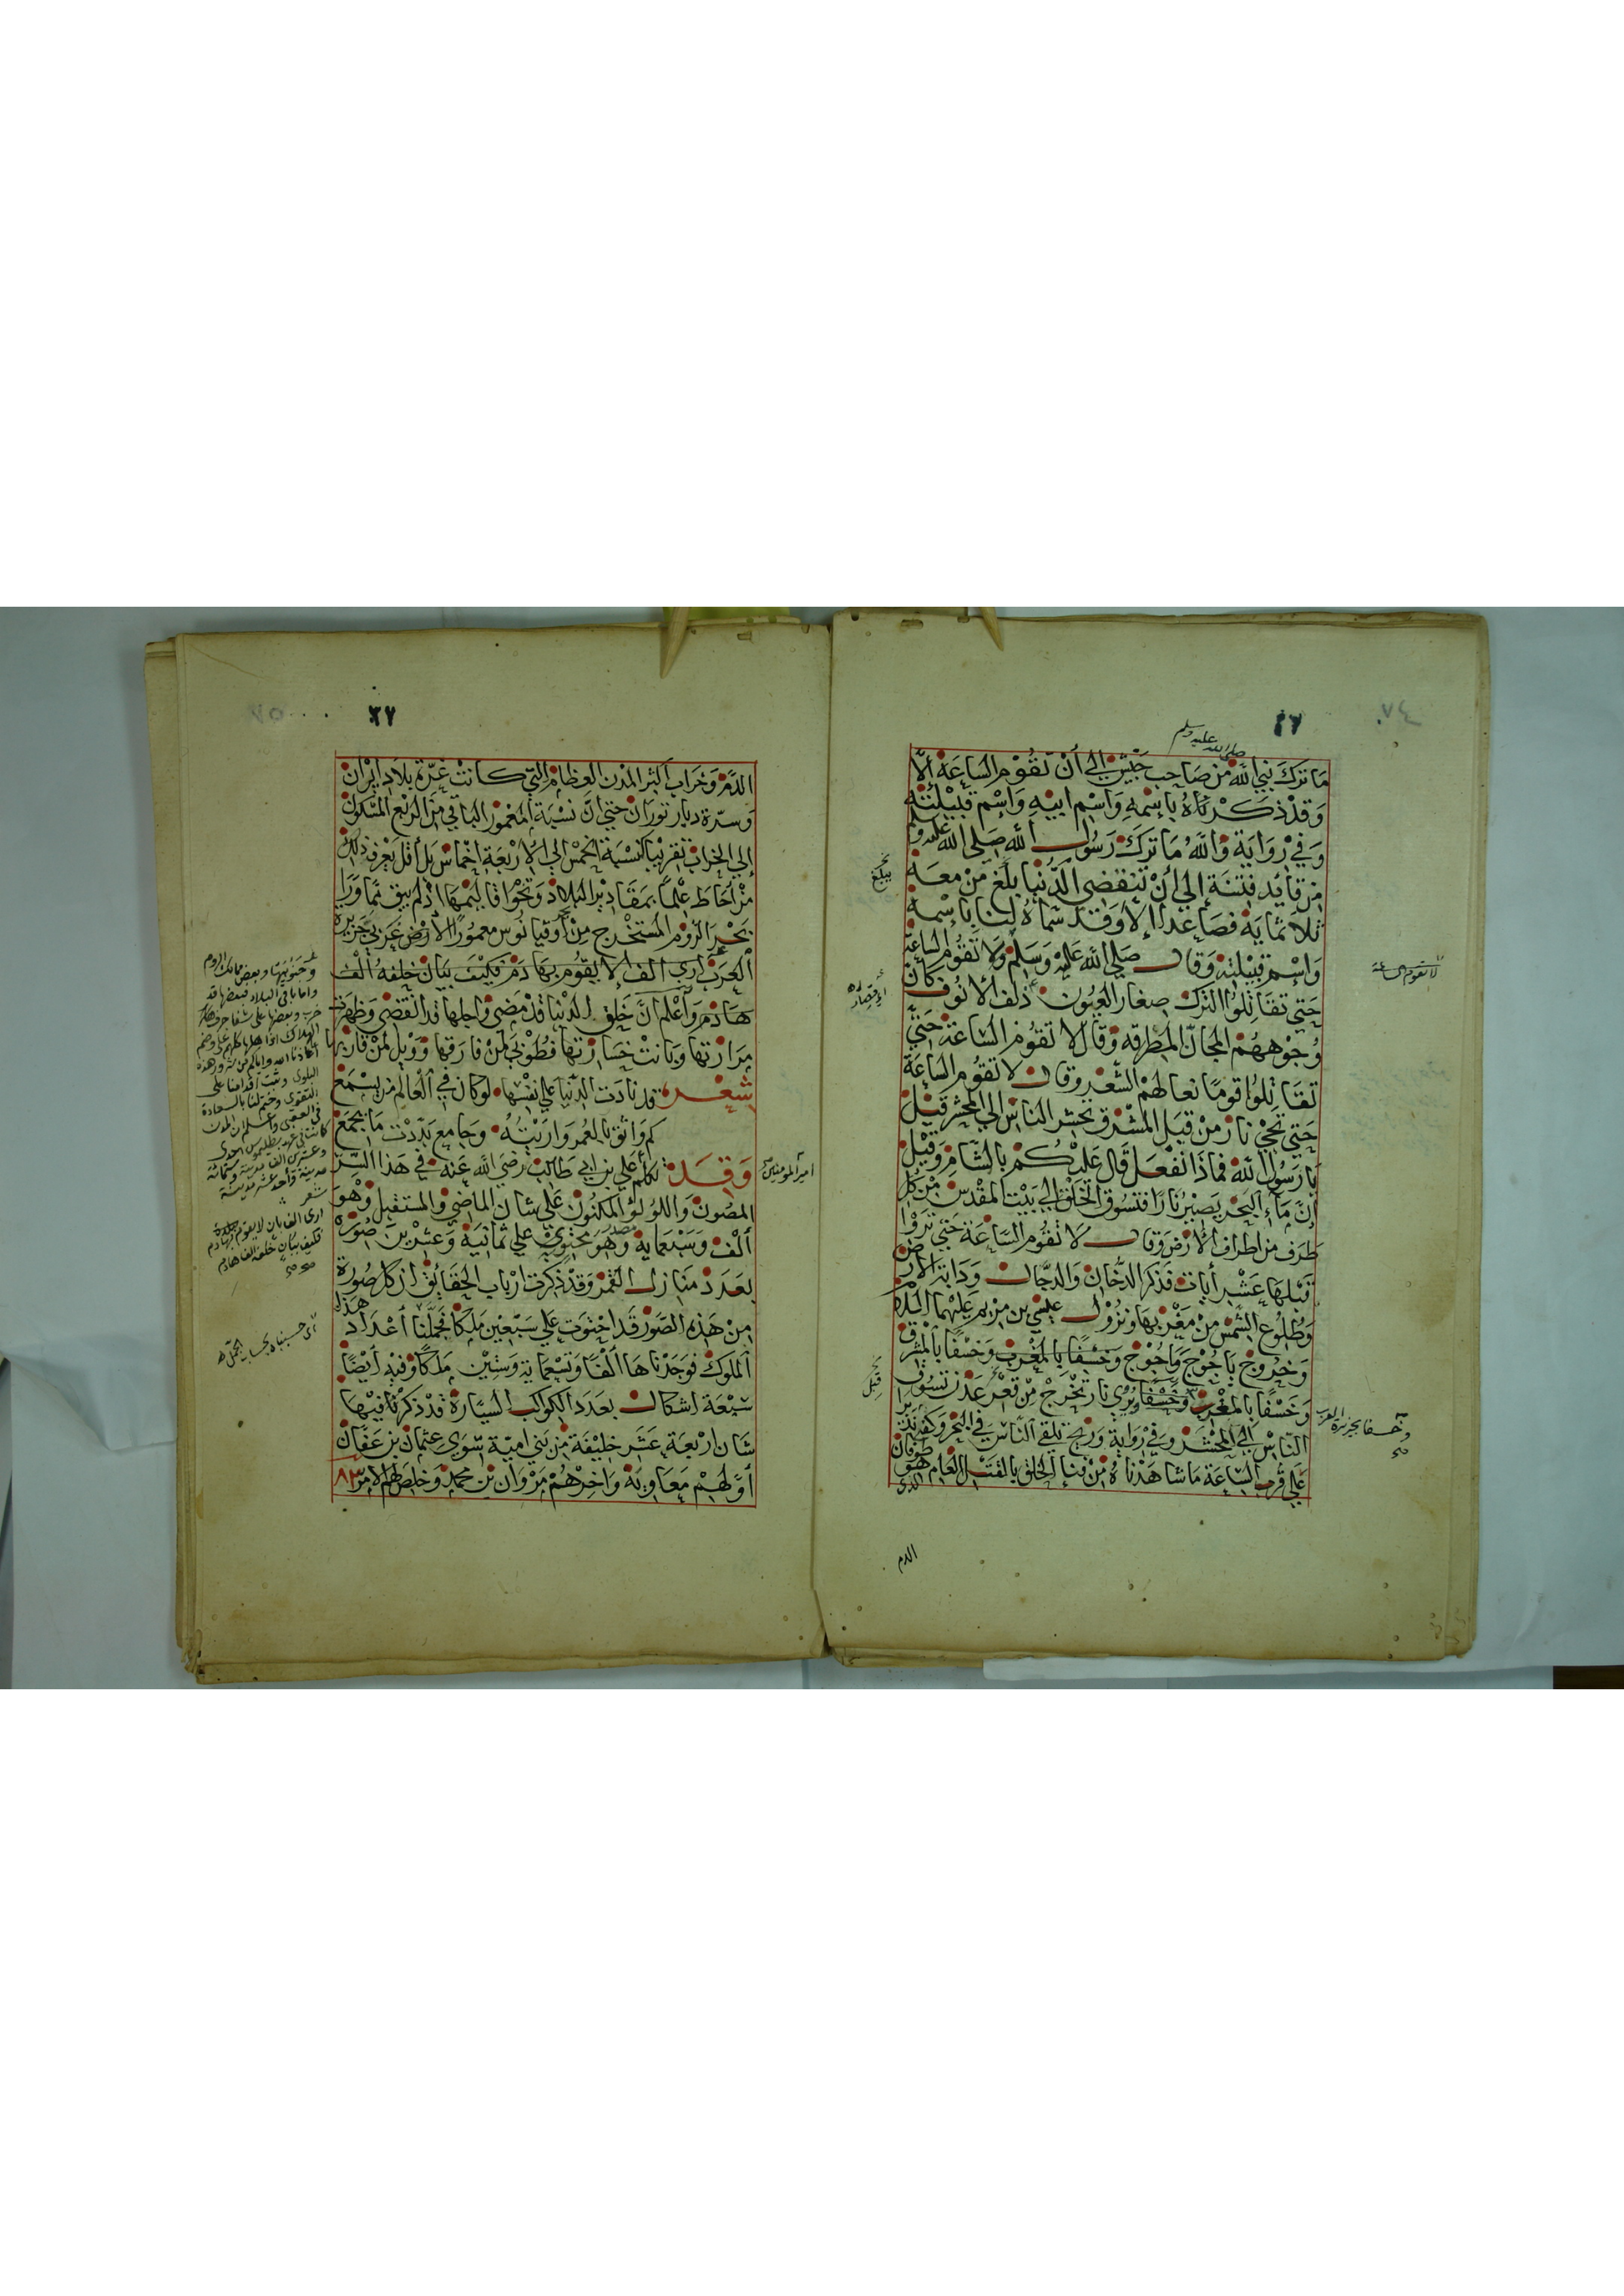 ٤٧
صلى الله عليه وسلم
ما تَرَكَ نبي الله من صَاحِب جَيْش إلى أنْ تقُوْم الساعَة إلاَّ
وَقدْ ذكَرْنَاهُ بإسْمِهِ وَاسْم ابيْهِ وَاسْم قبيْلتهِ
وَفي رْوَايَة وَاللهُ مَا تركَ رَسُول الله صَلى الله عليه وسلم
مِن قايْد فتنَة إلى أنْ تنقضي الدُّنيا بلَغ مَنْ معَهُ
ثلاثمايَة فصَاعدًا إلا وَقد سَماهُ لنا باسْمه
وَاسْم قبيْلتهِ وَقال صَلى الله عَليْهِ وَسَلم وَلا تقوُم الساعَة
حَتى تقاتلوُا الترك صِغار العيُون ذلف الأنوُف كأن
وُجوْهَهُم المجانّ المطرقة وَقال لا تقوُم السّاعَة حَتى
تقاتلوُا قومًا نعالهمْ الشّعْر وقال لا تقوُم السّاعَة
حَتى تجيْ نارٌ منْ قبَل المشْرق تحشر الناس إلى المحْشر قيْلَ
يا رَسُول الله فماذا نفعَل قال عَليْكُم بالشّامِ وَقيْل
إنّ مَاء البَحْر يَصيْر نارًا فتسُوق الخلق إلى بَيْت المقدس منْ كل
طَرف من اطراف الأرْض وَقال لا تقوُم السّاعَة حَتى ترَوْا
قبْلهَا عَشر أيات فذكر الدُّخان وَالدجّال وَدَابة الأرْض
وَطُلوع الشمْس منْ مَغربهَا وَنزُوْل عيْسى بن مَرْيم عَليْهما السّلام
وَخرُوج يَاجُوْج وَمَاجُوْج وَخسْفًا بالمغْرب وَخسْفًا بالمشْرق
وَخَسْفًا بالمغْرب وَخَسْفًا وَيُرى نار تَخْرجُ منْ قَعْر عَدَن تسُوق
الناسَ إلى المحْشر وَفي رْوَاية وَريح تلقي الناسَ في البَحْر وَكفى
عَلى قرب السّاعَة مَا شاهَدْناهُ منْ فنا الخلق بالقتل العَام هو طوفان
الدم
لا تقوم الساعة
وخسفا بجزيرة العرب
صح
يبلغ
قبل
٢٧
الدَّم وَخراب أكثر المدْن العِظَام التي كانتْ غرّة بلاد إيْرَان
وَسرّة ديار تورَان حَتى انّ نسْبَة المعْمور الباقي من الربْع المسْكون
إلى الخراب تقريْبا كنسْبَة الخمْس إلى الأرْبعَة اخماس بل أقل يعْرف ذلك
منْ أحَاط علْمًا بمقاديْر البلاد وَنحوْا قاليْمهَا اذ لم يبق ممّا وَرَا
بَحْر الرّوم المستخْرج منْ أوقيانوُس معموُرُ الأرْض غَربي جَزيرة
العَرَب أرى الف إلا يقوُم بهَا دَم فكيْف ببَيان خلفهُ ألف
هادم وَأعْلم انَّ خَلق الدنيا قد مضى وَاجلهَا قد انقضى وَظهَرت
مَرَارتهَا وَبَانتْ خسَارتهَا فطوْبى لمنْ فارَقها وَوَيْل لمنْ قاربها
شعْر قد نادَت الدّنيا على نفسْها لو كان في العَالم من يسْمَع
كم وَاثق بالعُمر وَاريْتُهُ وَجامع بَدّدْت مَا يجمَع
وَقد تكلم علي بن أبي طالبْ رَضي الله عَنه في هَذا السّر
المصُون وَاللؤلؤ المكنوُن عَلى شان الماضي وَالمستقبل وَهُوَ
ألف وَسَبْعماية وَهُوَ محتوي على ثمانية وَعشْرين صُوْرة
بعَدَد منَازل القمَر وَقدْ ذكرت ارْباب الحَقائِق ان كل صُورة
منْ هَذه الصّوَر قد احْتوَت عَلى سَبْعيْن مَلكا فجَمّلنا أعْدَاد هَذه
الملوك فوَجَدْناهَا ألفًا وَتسْعمَاية وَستيْن مَلكًا وَفيْهِ ايْضًا
سَبْعَة اشكال بعَدَد الكواكب السيّارة قدْ ذكَرْنا فيْهَا
شان ارْبعَة عَشَر خليْفَة من بَني امَيّة سّوَى عثمان بن عَفّان
أوّلهمْ مَعَاويَة وَاخرهُمْ مَرْوَان بن محمد وَخلصَ لهم الامر ٨٣
أمير المؤمنين
وجنوبيها وبعض ممالك الروم
واما باقي البلاد فبعضها قد
خرب وبعضها على شفا جرف هار
البلوى وثبت أقدامنا على
التقوى وختم لنا بالسعادة
في العقبى واعلم ان المدن
كانت في عهد بطليموس احدى
شعر
ارى الف بان لا يقوم بهادم
فكيف ببان خلفه الف هادم
صح